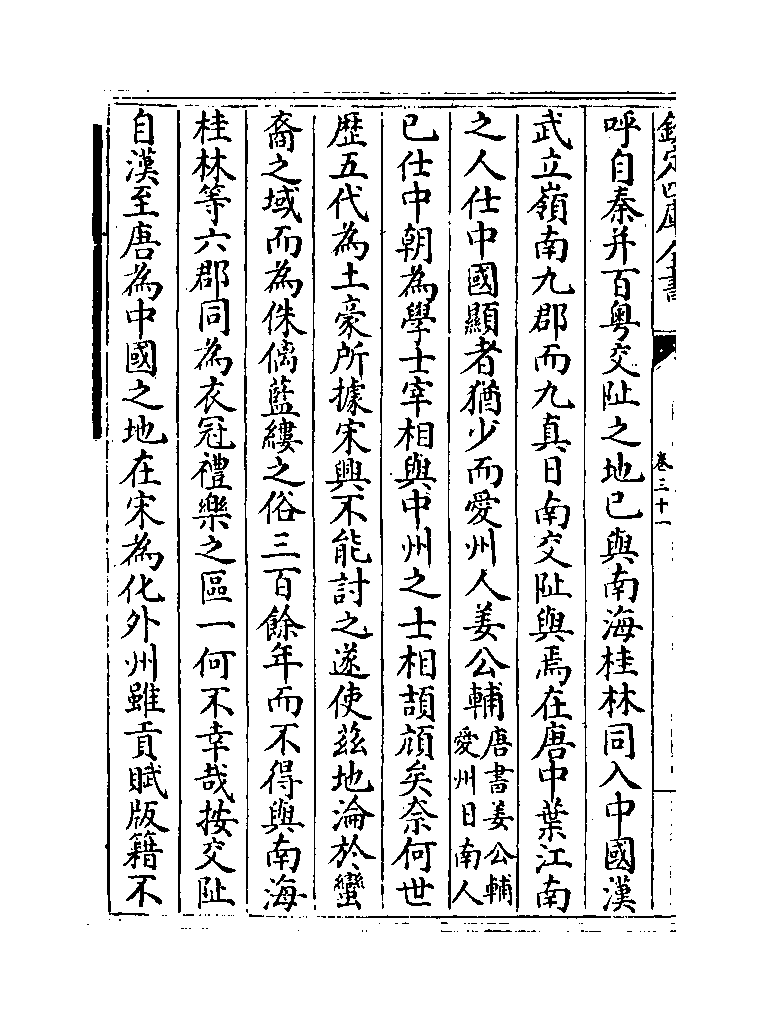 欽定四庫全書
卷三十一
呼自秦并百粵交阯之地已與南海桂林同入中國漢
武立嶺南九郡而九真日南交阯與焉在唐中葉江南
之人仕中國顯者猶少而愛州人姜公輔唐書姜公輔愛州日南人
已仕中朝為學士宰相與中州之士相頡頏矣奈何世
歷五代為土豪所據宋興不能討之遂使兹地淪於蠻
裔之域而為侏僪藍縷之俗三百餘年而不得與南海
桂林等六郡同為衣冠禮樂之區一何不幸哉按交阯
自漢至唐為中國之地在宋為化外州雖貢賦版籍不